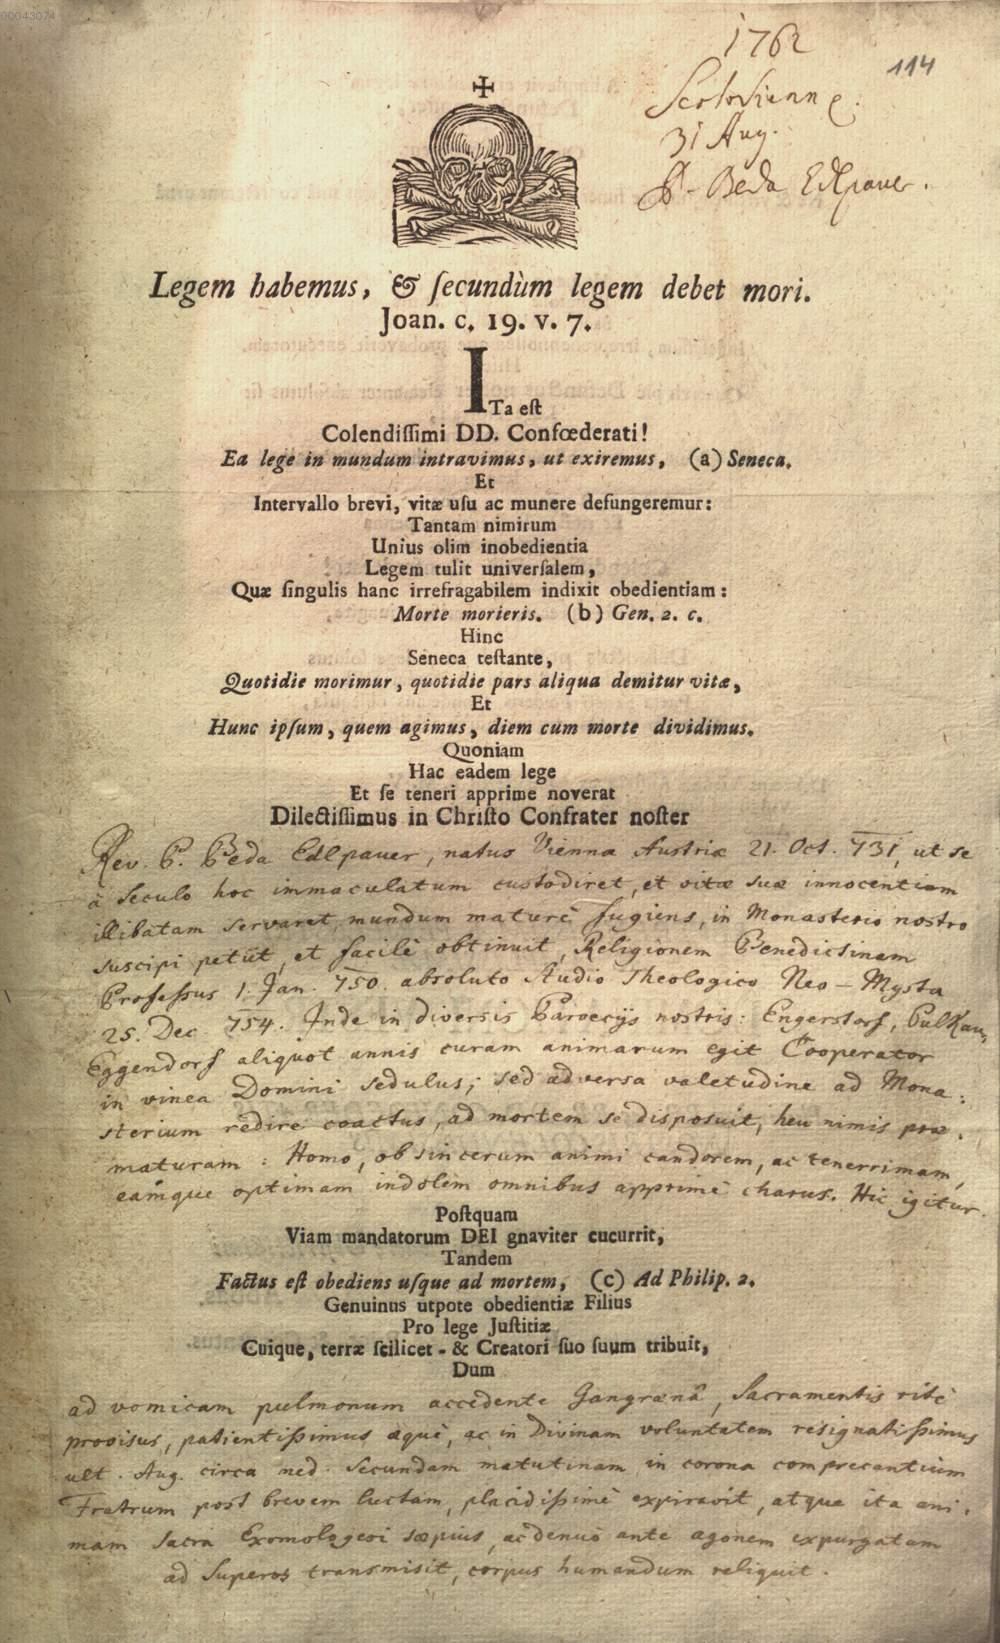 00043074
1762
114
Scotovienn
31 Aug.
P. Beda Edlpauer.
Legem habemus, & ſecundùm legem debet mori.
Joan. c. 19. v. 7.
ITa eſt
Colendiſſimi DD. Confœderati!
Ea lege in mundum intravimus, ut exiremus, (a) Seneca.
Et
Intervallo brevi, vitæ uſu ac munere defungeremur:
Tantam nimirum
Unius olim inobedientia
Legem tulit univerſalem,
Quæ ſingulis hanc irrefragabilem indixit obedientiam:
Morte morieris. (b) Gen. 2. c.
Hinc
Seneca teſtante,
Quotidie morimur, quotidie pars aliqua demitur vitæ,
Et
Hunc ipſum, quem agimus, diem cum morte dividimus.
Quoniam
Hac eadem lege
Et ſe teneri apprime noverat
Dilectiſſimus in Chriſto Confrater noſter
Rev. P. Beda Edlpauer, natus Vienna Austriæ 21. Oct. 731, ut se
à seculo hoc immaculatum custodiret, et vitæ suæ innocentiam
illibatam servaret, mundum maturè fugiens, in Monasterio nostro
suscipi petiit, et facilè obtinuit, Religionem Benedictinam
Professus 1. Jan. 750. absoluto studio Theologico Neo-Mysta
25. Dec 754. Inde in diversis Parœcijs nostris: Engerstorf, Pulkau,
Eggendorf aliquot annis curam animarum egit Cooperator
in vinea Domini sedulus; sed adversa valetudine ad Mona:
sterium redire coactus, ad mortem se disposuit, heu nimis præ.
maturam: Homo, ob sincerum animi candorem, ac tenerrimam,
eamque optimam indolem omnibus apprimè charus. Hic igitur.
Poſtquam
Viam mandatorum DEI gnaviter cucurrit,
Tandem
Factus eſt obediens uſque ad mortem, (c) Ad Philip. 2.
Genuinus utpote obedientiæ Filius
Pro lege Juſtitiæ
Cuique, terræ ſcilicet - & Creatori ſuo ſuum tribuit,
Dum
ad vomicam pulmonum accedente Gangrænâ, Sacramentis ritè
provisus, patientissimus æquè, ac in Divinam voluntatem resignatissimus
ult. Aug. circa med. secundam matutinam in corona comprecantium
Fratrum post brevem luctam, placidissimè expiravit, atque ita ani.
mam sacra Exomologesi sæpius, ac denuò ante agonem expurgatam
ad Superos transmisit, corpus humandum reliquit.